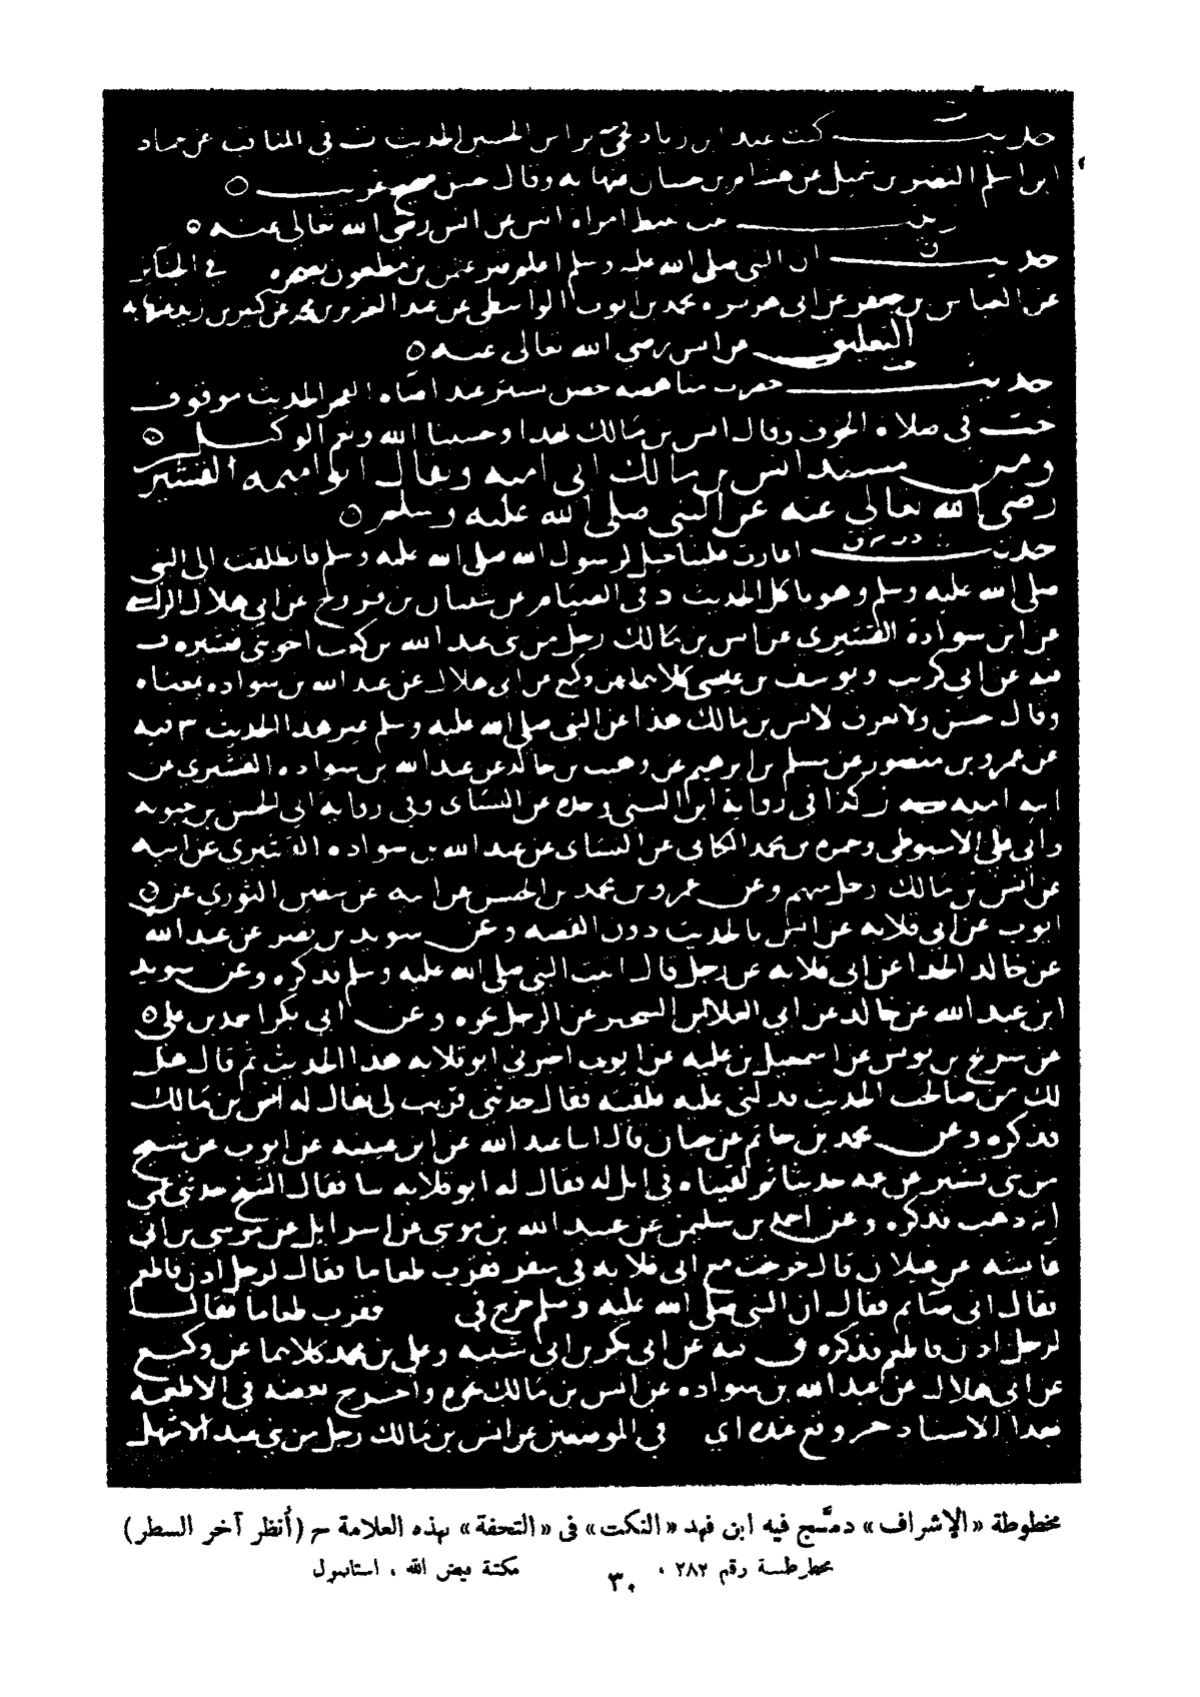 حديث كنت عند ابن زياد فجئ براس الحسين الحديث ت في المناقب عن حماد
ابن اسلم النضر بن شميل عن هشام بن حسان عنها به وقال حسن صحيح غريب
حفصة امراة انس عن انس رضي الله تعالى عنه
حديث ان النبي صلى الله عليه وسلم اعلم قبر عثمن بن مظعون بصخره ق في الجنائز
عن العباس بن جعفر عن ابي هريره محمد بن ايوب الواسطي عن عبد العزيز بن محمد عن كثير بن زيد عنها به
التعليق عن انس رضي الله تعالى عنه
حديث حضرت مناهضة حصن تستر عند اضاه الفجر الحديث موقوف
خت في صلاة الخوف وقال انس بن مالك
ومن مسند انس بن مالك ابي اميه ويقال ابو اميمه القشيري
رضي الله تعالى عنه عن النبي صلى الله عليه وسلم
حديث اغارت علينا خيل لرسول الله صلى الله عليه وسلم فانطلقت الى النبي
صلى الله عليه وسلم وهو ياكل الحديث د في الصيام عن شيبان بن فروخ عن ابي هلال الراسبي
عن ابن سوادة القشيري عن انس بن مالك رجل من بني عبد الله بن كعب اخوة بني قشير به ت
فيه عن ابي كريب ويوسف بن عيسى كلاهما عن وكيع عن ابي هلال عن عبد الله بن سواده بمعناه
وقال حسن ولا نعرف لانس بن مالك هذا عن النبي صلى الله عليه وسلم غير هذا الحديث س فيه
عن عمرو بن منصور عن مسلم بن ابرهيم عن وهيب بن خالد عن عبد الله بن سواده القشيري عن
ابيه كذا في رواية ابن السني وحده عن النسائ وفي رواية ابي الحسن بن حيويه
وابي علي الاسيوطي وحمزه بن محمد الكناني عن النسائ عن عبد الله بن سواده القشيري عن ابيه
عن انس بن مالك رجل منهم وعن عمرو بن محمد بن الحسن عن ابيه عن سفين الثوري عن
ايوب عن ابي قلابه عن انس بالحديث دون القصه وعن سويد بن نصر عن عبد الله
عن خالد الحذا عن ابي قلابه عن رجل قال اتيت النبي صلى الله عليه وسلم فذكره وعن سويد
ابن عبد الله عن خالد عن ابي العلا بن الشخير عن الرجل نحوه وعن ابي بكر احمد بن علي
عن سريج بن يونس عن اسمعيل بن عليه عن ايوب اخبرني ابو قلابه هذا الحديث ثم قال هل
لك في صاحب الحديث فدلني عليه فلقيته فقال حدثني قريب لي يقال له انس بن مالك
فذكره وعن محمد بن حاتم عن حبان قال انا عبد الله عن ابن عيينه عن ايوب عن شيخ
من بني قشير عن عمه حدثنا ثم لقيناه في ابل له فقال له ابو قلابه حدثنا فقال الشيخ حدثني عمي
انه ذهب فذكره وعن احمد بن سليمن عن عبيد الله بن موسى عن اسرائيل عن موسى بن ابي
عائشه عن غيلان قال خرجت مع ابي قلابه في سفر فقرب طعاما فقال لرجل ادن فاطعم
فقال اني صائم فقال ان النبي صلى الله عليه وسلم خرج في فقرب طعاما فقال
لرجل ادن فاطعم فذكره ق فيه عن ابي بكر بن ابي شيبه وعلي بن محمد كلاهما عن وكيع
عن ابي هلال عن عبد الله بن سواده عن انس بن مالك نحوه واخرج بعضه في الاطعمه
بهذا الاسناد س ووقع عنده اي في الموضعين عن انس بن مالك رجل من بني عبد الاشهل
مخطوطة «الإشراف» دمّج فيه ابن فهد «النكت» في «التحفة» بهذه العلامة س (أُنظر آخر السطر)
مخطوطة رقم ٢٨٢ ، مكتبة فيض الله ، استانبول
٣٠